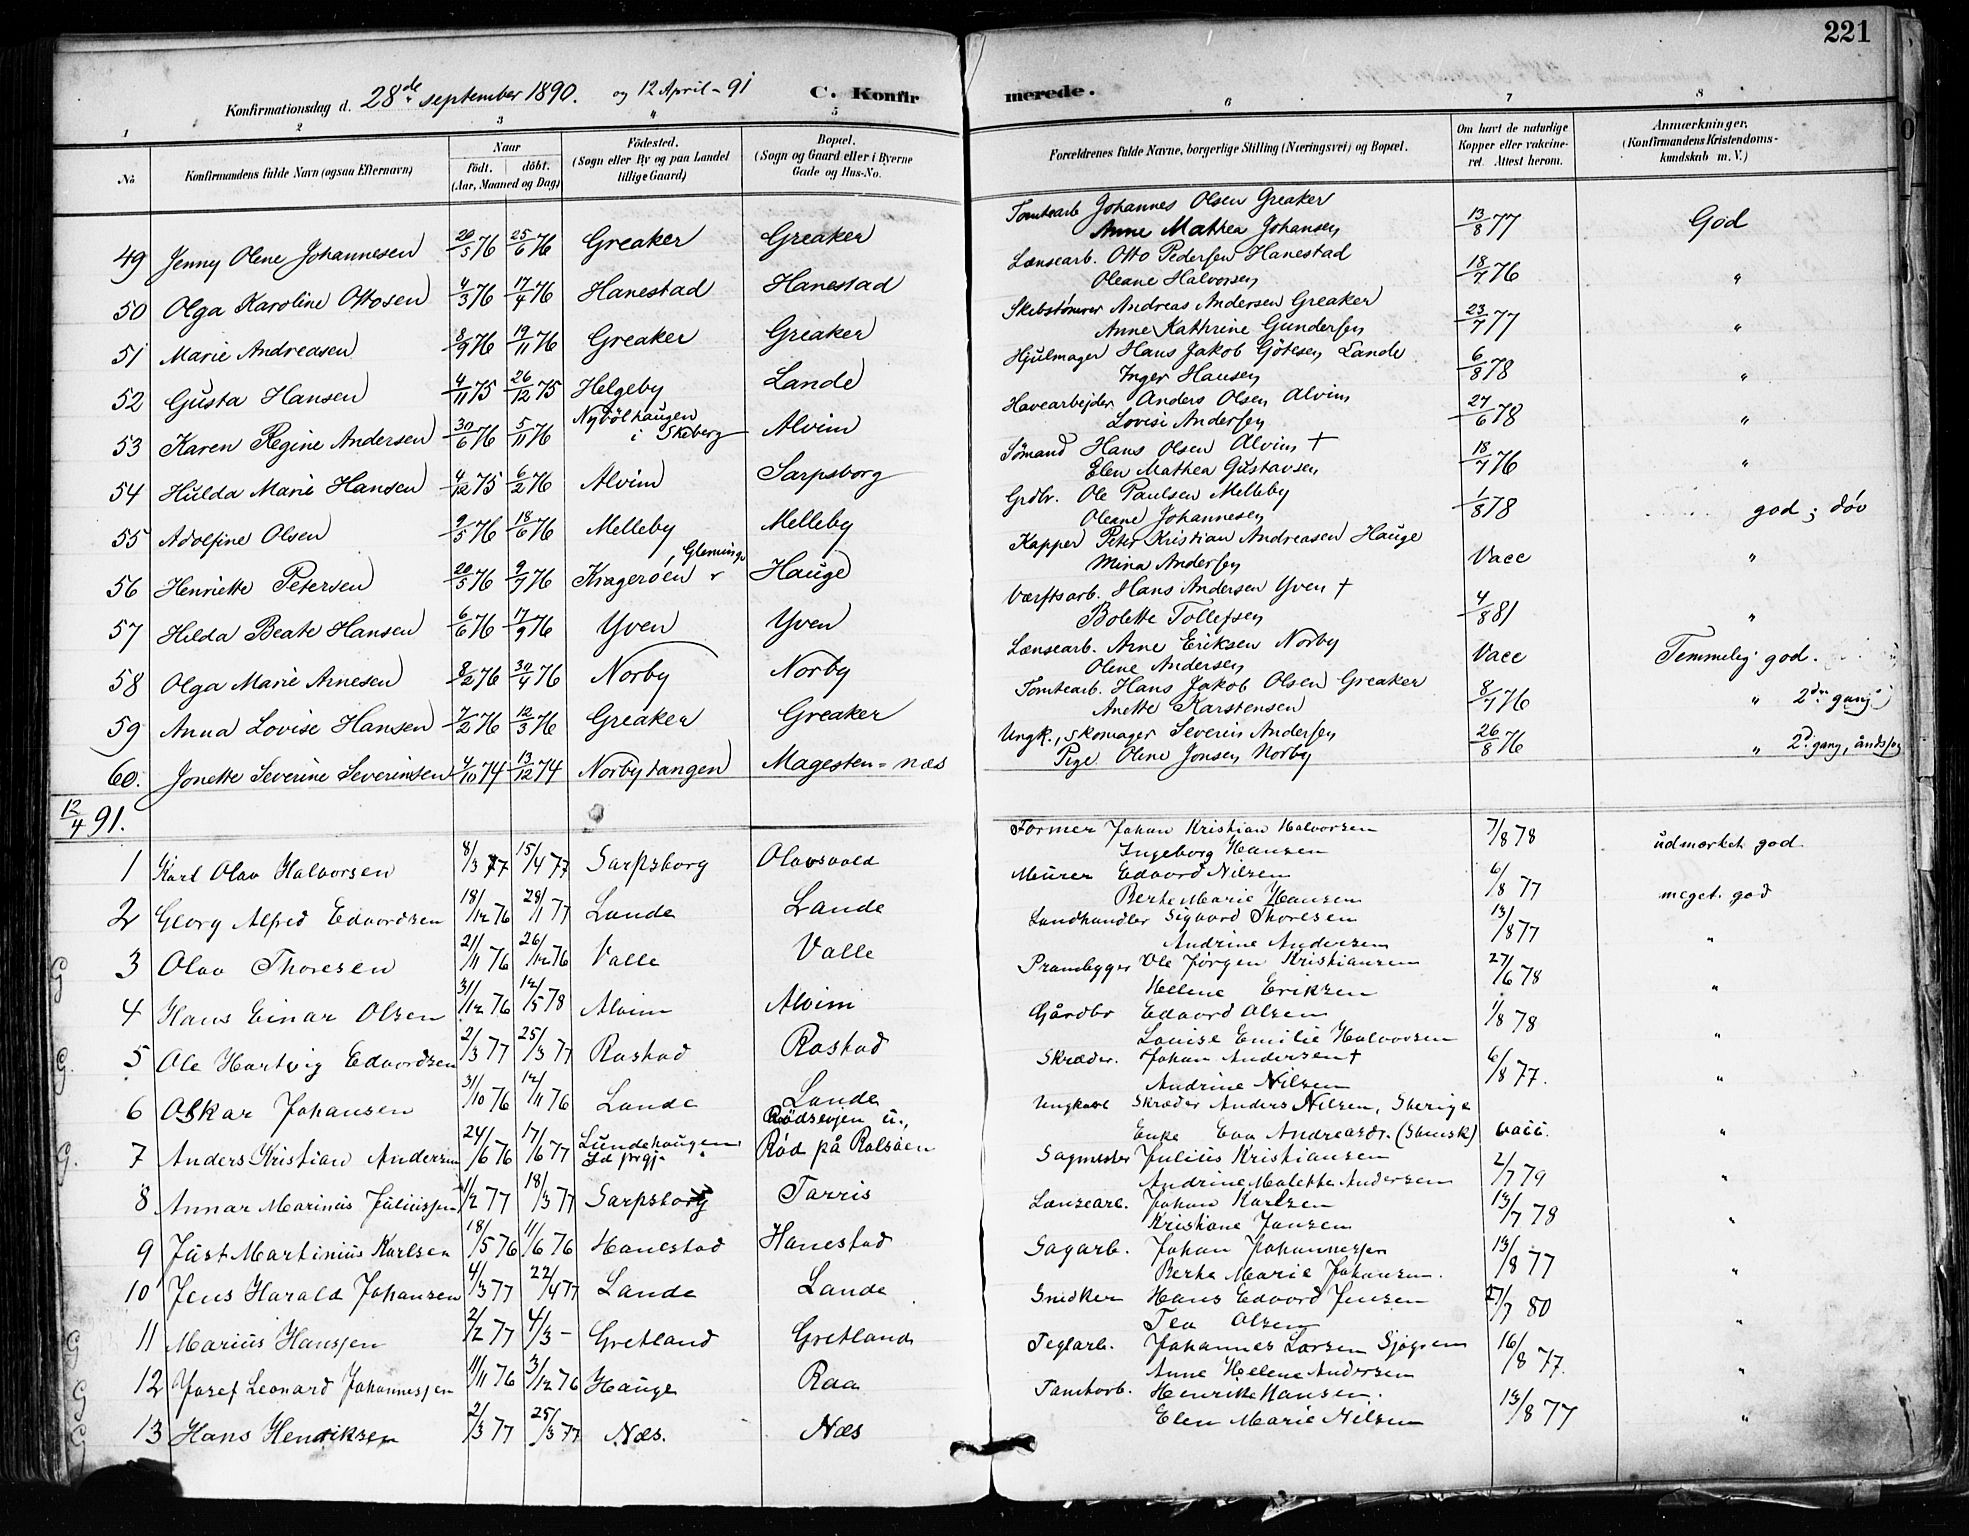 221
Konfirmationsdag d. 28de september 1890. og 12 April - 91 C. Konfirmerede.
1 2 3 4 5 6 7 8
No
Konfirmandens fulde Navn (ogsaa Efternavn)
Naar
født. døbt.
(Aar, Maaned og Dag)
Fødested.
(Sogn eller By og paa Landet
tillige Gaard)
Bopæl.
(Sogn og Gaard eller i Byerne
Gade og Hus-No.
Forældrenes fulde Navne, borgerlige Stilling (Næringsvei) og Bopæl.
Om havt de naturlige
Kopper eller vakcine-
ret. Attest herom.
Anmærkninger.
(Konfirmandens Kristendoms-
kundskab m. V.)
49 Jenny Olene Johannesen 20/5 76 25/6 76 Greaker Greaker Tomtearb Johannes Olsen Greaker 13/8 77 God
Anne Mathea Johansen
50 Olga Karoline Ottosen 4/3 76 17/4 76 Hanestad Hanestad Lænsearb. Otto Pedersen Hanestad 18/7 76 "
Oleane Halvorsen
51 Marie Andreasen 8/9 76 19/11 76 Greaker Greaker Skibstømrer Andreas Andersen Greaker 23/7 77 "
Anne Kathrine Gundersen
52 Gusta Hansen 4/11 75 26/12 75 Helgeby Lande Hjulmager Hans Jakob Götesen Lande 6/8 78 "
Inger Hansen
53 Karen Regine Andersen 30/6 76 5/11 76 Nybölhaugen i Skeberg Alvim Havearbejder Anders Olsen Alvim 27/6 78 "
Lovise Andersen
54 Hulda Marie Hansen 4/12 75 6/2 76 Alvim Sarpsborg Sömand Hans Olsen Alvim + 18/7 76 "
Elen Mathea Gustavsen
55 Adolfine Olsen 9/5 76 18/6 76 Melleby Melleby Grdbr. Ole Paulsen Melleby 1/8 78 god; döv
Oleane Johannesen
56 Henriette Petersen 20/5 76 9/7 76 Kragerøen, Glemminge Hauge Kapper Peter Kristian Andreasen Hauge Vacc "
Mina Andersen
57 Hilda Beate Hansen 6/6 76 17/9 76 Yven Yven Værftsarb. Hans Andersen Yven + 4/8 81 "
Bolette Tollefsen
58 Olga Marie Arnesen 8/2 76 30/4 76 Norby Norby Lænsearb. Arne Eriksen Norby Vacc Temmelig god.
Olene Andersen
59 Anna Lovise Hansen 7/2 76 12/3 76 Greaker Greaker Tomtearb. Hans Jakob Olsen Greaker 8/7 76 " 2den gang
Anette Karstensen
60. Jonette Severine Severinsen 4/10 74 13/12 74 Norbytangen Magesten=næs Ungk., skomager Severin Andersen 26/8 76 " 2d. gang, åndssv
Pige Oline Jonsen Norby
12/4 91.
1 Karl Olav Halvorsen 8/3 77 15/4 77 Sarpsborg Olavsvold Former Johan Kristian Halvorsen 7/8 78 udmærket god.
Ingeborg Hansen
2 Georg Alfred Edvardsen 18/12 76 28/1 77 Lande Lande Murer Edvard Nilsen 6/8 77 meget god
Berte Marie Hansen
3 Olav Thoresen 21/11 76 26/12 76 Valle Valle Landhandler Sigvard Thoresen 13/8 77 "
Andrine Andersen
G 4 Hans Einar Olsen 31/12 76 12/5 78 Alvim Alvim Prambygger Ole Jørgen Kristiansen 27/6 78 "
Helene Eriksen
5 Ole Hartvig Edvardsen 2/3 77 25/3 77 Rostad Rostad Gårdbr Edvard Olsen 1/8 78 "
Louise Emilie Halvorsen
G. 6 Oskar Johansen 31/10 76 12/11 76 Lande Lande Skræder. Johan Andersen + 6/8 77. "
Andrine Nilsen
G. 7 Anders Kristian Andersen 24/6 76 17/6 77 Lundehaugen Id prgj. Rödsevjen u., Rød på Rolsøen Ungkarl Skræder Anders Nilsen, Sverige vacc. "
Enke Eva Andreasdr. (Svensk)
8 Annar Marinus Juliussen 1/2 77 18/3 77 Sarpsborg Tarris Sagmester Julius Kristiansen 2/7 79 "
Andrine Malette Andersen
9 Just Martinius Karlsen 18/5 76 11/6 76 Hanestad Hanestad Lænsearb. Johan Karlsen 13/7 78 "
Kristiane Jansen
10 Jens Harald Johansen 4/3 77 22/4 77 Lande Lande Sagarb. Johan Johannessen 13/8 77 "
Berte Marie Johansen.
11 Marius Hanssen 2/2 77 4/3 - Gretland Gretland Snedker Hans Edvard Jensen 27/7 80 "
Tea Olsen
G 12 Josef Leonard Johannessen 11/11 76 3/12 76 Hauge Raa Teglarb. Johannes Larsen Sjøgren 16/8 77. "
Anne Helene Andersen
G 13 Hans Henriksen 2/3 77 25/3 77 Næs. Næs Tomtarb. Henrik Hansen. 13/8 77 "
G Elen Marie Nilsen